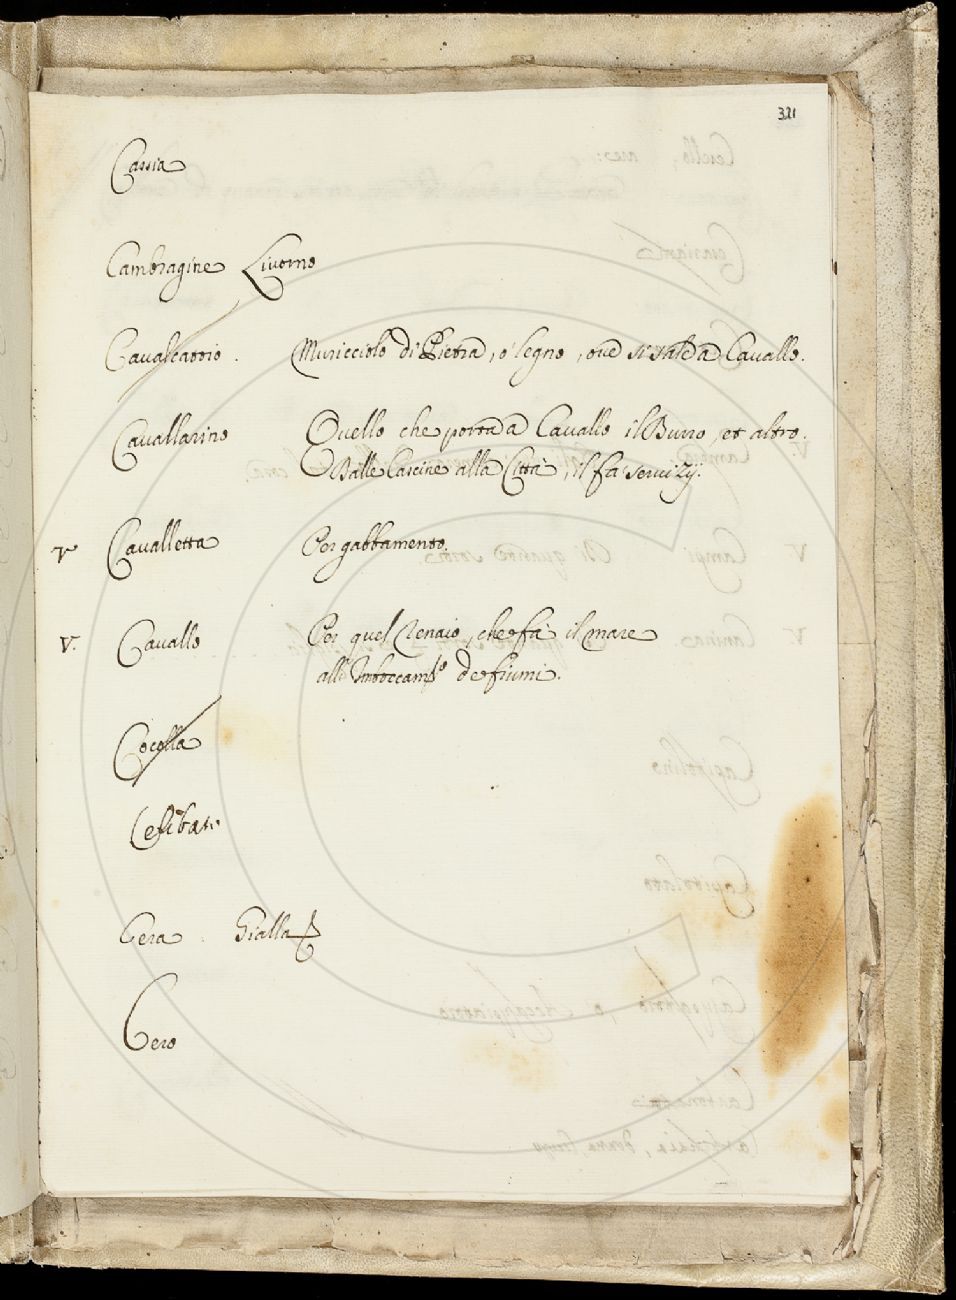 321
Cassia
Cambragine Livorno
Cavalcatoio. Muricciolo di Pietra, ò legno, ove si sale à Cavallo.
Cavallarino Quello che porta à Cavallo il Burro, et altro.
Dalle Cascine alla Città, il fa servizij.
V Cavalletta Per gabbamento.
V. Cavallo Per quel Renaio, che fà il mare
all' Imboccam.to de fiumi.
Cocolla
Celibato
Cera. Gialla
Cero